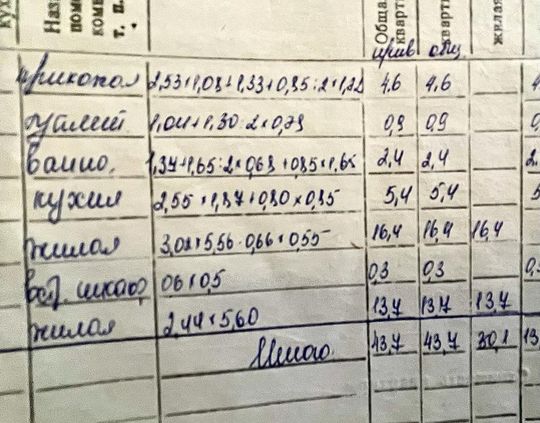 Наз
пом
ком
т. п.
Обща
кварти
кварти
жилая
прив общ.
прихожая 2,53×1,08+1,33+0,85:2×1,22 4,6 4,6
туалет 1,04+1,30:2×0,79 0,9 0,9
ванно. 1,37+1,65:2×0,63+0,85×1,65 2,4 2,4
кухня 2,55×1,87+0,80×0,85 5,4 5,4
жилая 3,02×5,56-0,66×0,55 16,4 16,4 16,4
вст. шкаф 06×0,5 0,3 0,3
жилая 2,44×5,60 13,7 13,7 13,7
Итого 43,7 43,7 30,1 13